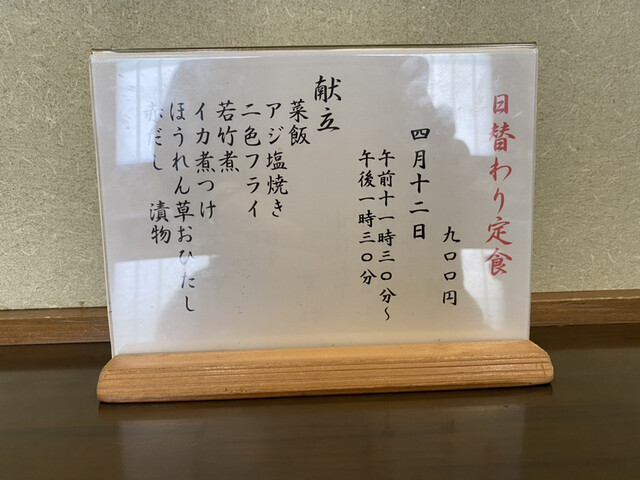 日替わり定食
九〇〇円
四月十二日
午前十一時三〇分～
午後一時三〇分
献立
菜飯
アジ塩焼き
二色フライ
若竹煮
イカ煮つけ
ほうれん草おひたし
赤だし 漬物